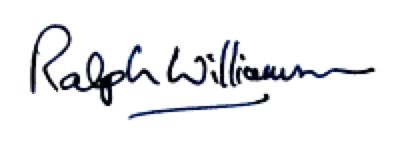 Ralph Williamson